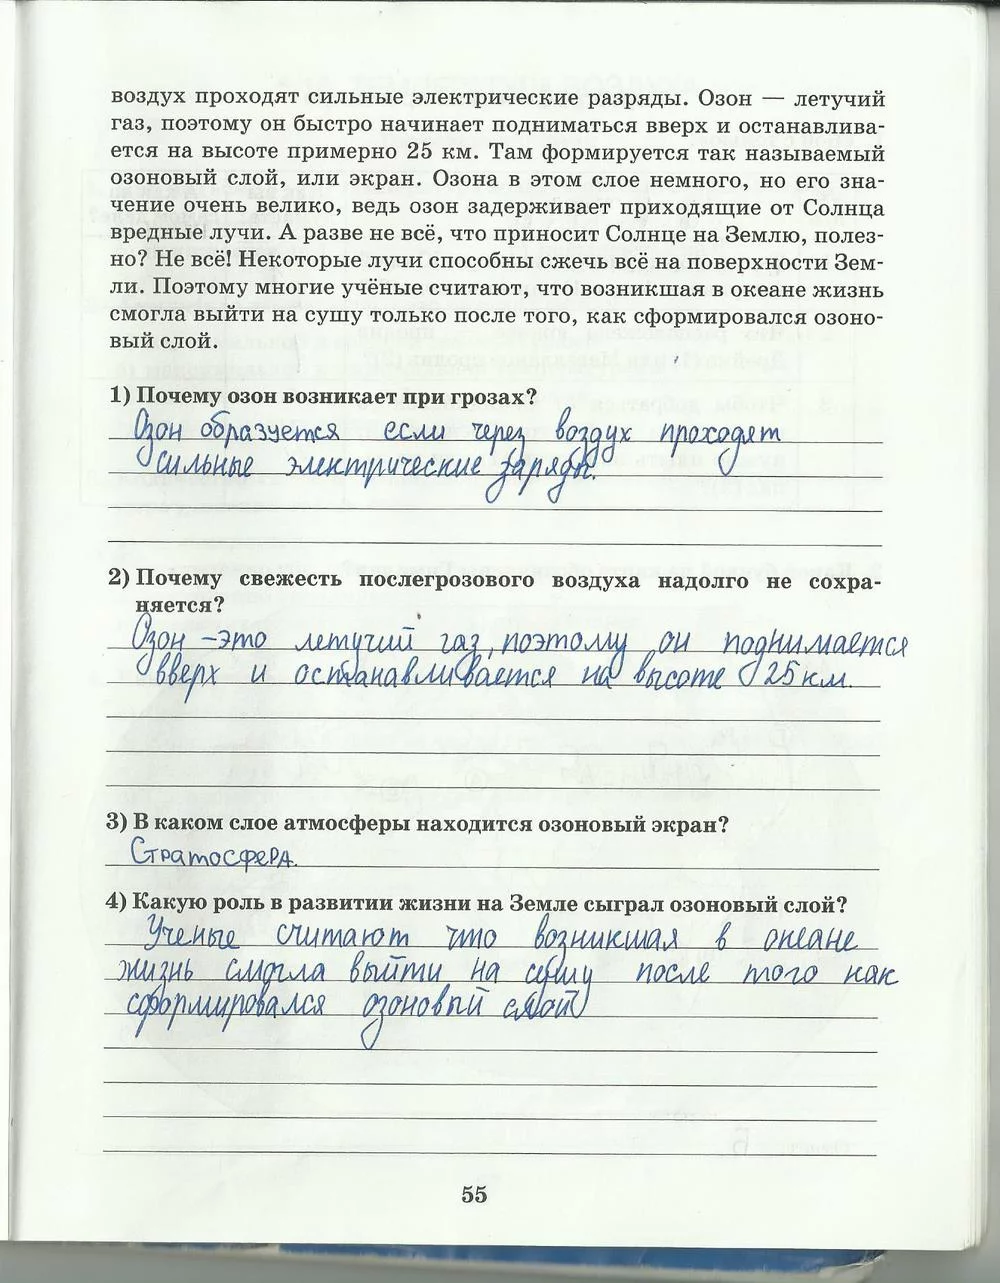 воздух проходят сильные электрические разряды. Озон — летучий
газ, поэтому он быстро начинает подниматься вверх и останавлива-
ется на высоте примерно 25 км. Там формируется так называемый
озоновый слой, или экран. Озона в этом слое немного, но его зна-
чение очень велико, ведь озон задерживает приходящие от Солнца
вредные лучи. А разве не всё, что приносит Солнце на Землю, полез-
но? Не всё! Некоторые лучи способны сжечь всё на поверхности Зем-
ли. Поэтому многие учёные считают, что возникшая в океане жизнь
смогла выйти на сушу только после того, как сформировался озоно-
вый слой.
1) Почему озон возникает при грозах?
Озон образуется если через воздух проходят
сильные электрические заряды.
2) Почему свежесть послегрозового воздуха надолго не сохра-
няется?
Озон – это летучий газ, поэтому он поднимается
вверх и останавливается на высоте 25 км.
3) В каком слое атмосферы находится озоновый экран?
Стратосфера.
4) Какую роль в развитии жизни на Земле сыграл озоновый слой?
Ученые считают что возникшая в океане
жизнь смогла выйти на сушу после того как
сформировался озоновый слой
55